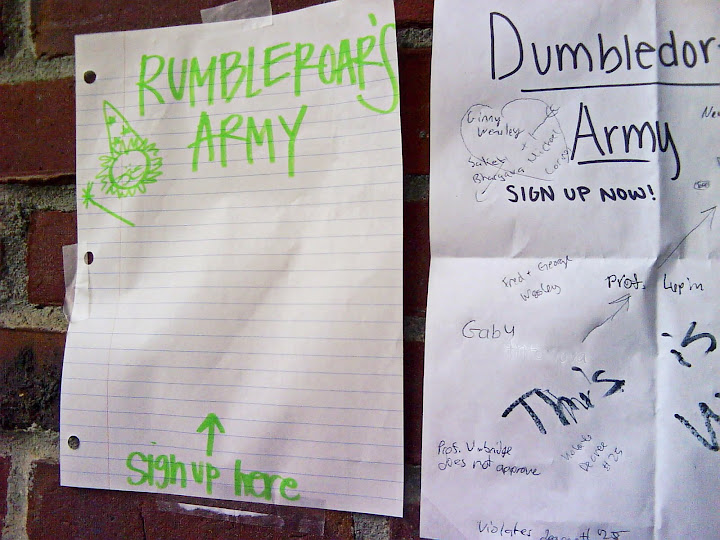 RUMBLEROAR'S
ARMY
Sign up here
Dumbledor
Army
SIGN UP NOW!
Ginny
Weasley
+
Michael
Saket
Bhargava
Fred + George
Weasley
Prof. Lupin
Gaby
This
is
Prof. Umbridge
does not approve
Violates
Decree
#25
Violates
# 25